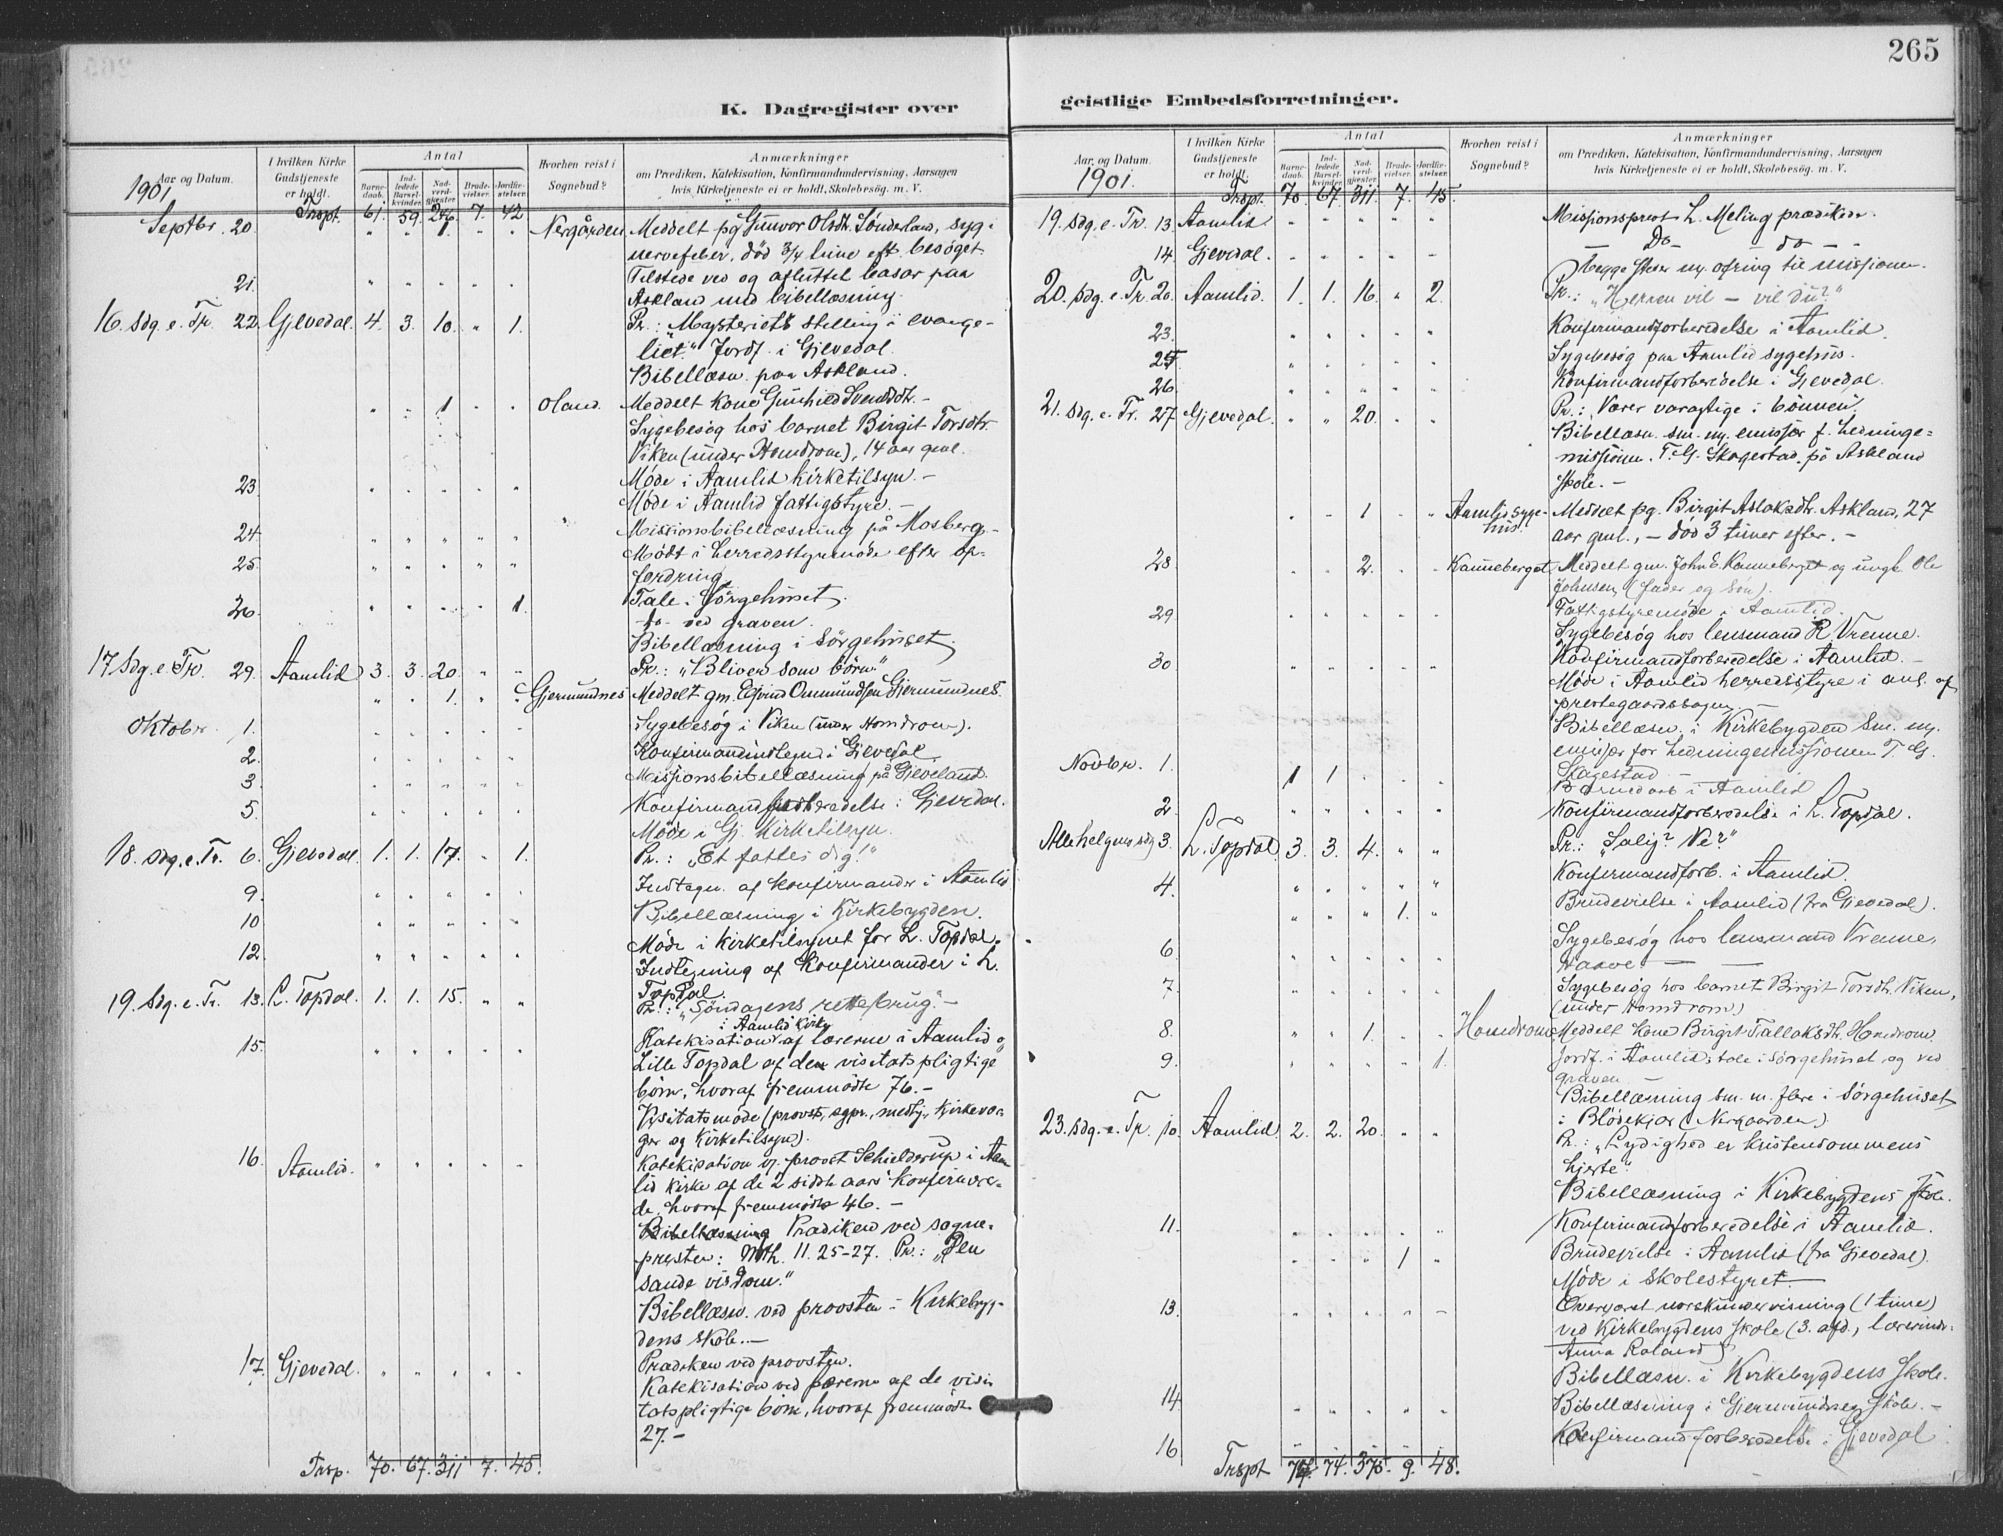 265
K. Dagregister over
Aar og Datum.
1901
I hvilken Kirke
Gudstjeneste
er holdt.
Antal
Barne-
daab.
Ind-
ledede
Barsel-
kvinder.
Nad-
verd-
gjester.
Brude-
vielser.
Jordfæ-
stelser.
Hvorhen reist i
Sognebud?
Anmærkninger
om Prædiken, Katekisation, Konfirmandundervisning, Aarsagen
hvis Kirketjeneste ei er holdt, Skolebesøg. m. V.
Trspt. 61. 59. 246. 7. 42
Septbr. 20. " " 1. " " Nergården Meddelt pg Gunvor Olsdtr. Sønderland, syg i
nervefeber, død 3/4 time eft. besøget.
21. " " " " " Tilstede ved og afsluttet basar paa
Askland med bibellæsning.
16. Sdg. e. Tr. 22. Gjevedal. 4. 3. 10. " 1. Pr.: "Mysteriets stilling i evange-
liet." Jordf. i Gjevedal.
Bibellæsn. paa Askland.
" " 1 " " Oland. Meddelt kone Gunhild Svendsdtr. –
Sygebesøg hos barnet Birgit Torsdtr
Viken (under Homdrom), 14 aar gml.
23. " " " " " Møde i Aamlid kirketilsyn. –
Møde i Aamlid fattigstyre. –
24. " " " " " Missionsbibellæsning på Mosberg. –
25. " " " " " Mødt i herredsstyremøde efter op-
fordring.
26. " " " " 1. Tale i sørgehuset.
do ved graven.
Bibellæsning i sørgehuset.
17 Sdg. e. Tr. 29. Aamlid 3. 3. 20. " " Pr.: "Bliver som børn"
" " 1. " " Gjermundnes Meddelt gm. Ejvind Onmundsen Gjermundnes.
Oktober 1. " " " " " Sygebesøg i Viken (under Homdrom).
2. " " " " " Konfirmandindtegn. i Gjevedal.
3. " " " " " Missionsbibellæsning på Gjeveland.
5. " " " " " Konfirmandforberedelse i Gjevedal.
Møde i Gj. Kirketilsyn.
18. Sdg. e. Tr. 6. Gjevedal 1. 1. 17. " 1. Pr.: "Et fattes dig!"
9. " " " " " Indtegn. af konfirmander i Aamlid
10 " " " " " Bibellæsning i Kirkebygden.
12 " " " " " Møde i kirketilsynet for L. Topdal.
Indtegning af konfirmander i L.
Topdal.
19. Sdg. e. Tr. 13. L. Topdal. 1. 1. 15. " " Pr.: "Søndagens rette brug." –
i Aamlid kirke
15. " " " " " Katekisation af lærerne i Aamlid o
Lille Topdal af den visitatspligtige
børn, hvoraf fremmødte 76. –
Visitatsmøde (provst, sgpr., medhj., kirkevær-
ger og kirketilsyn).
16. Aamlid. " " " " " Katekisation v. provst Schielderup i Aam
lid kirke af de 2 sidste aars konfirmere-
de, hvoraf fremmødte 46. –
Bibellæsning Prædiken ved sogne-
presten: Mth. 11. 25-27. Pr.: "Den
sande visdom."
Bibellæsn. ved provsten i Kirkebyg-
dens skole. –
17. Gjevedal. " " " " " Prædiken ved provsten.
Katekisation ved lærerne af de visi
tatspligtige børn, hvoraf fremmødte
27. –
Trsp. 70. 67. 311 7. 45.
geistlige Embedsforretninger.
Aar, og Datum.
1901.
I hvilken Kirke
Gudstjeneste
er holdt.
Antal
Barne-
daab.
Ind-
ledede
Barsel-
kvinder.
Nad-
verd-
gjester.
Brude-
vielser.
Jordfæ-
stelser.
Hvorhen reist i
Sognebud?
Anmærkninger
om Prædiken, Katekisation, Konfirmandundervisning, Aarsagen
hvis Kirketjeneste ei er holdt, Skolebesøg. m. V.
Trspt. 70. 67. 311. 7. 45.
19. Sdg. e. Tr. 13. Aamlid " " " " " Missionsprest L. Meling prædiken.
14. Gjevedal. " " " " " – Do – – do – –
Begge steder ny. ofring til missionen.
20. Sdg. e. Tr. 20. Aamlid. 1. 1. 16. " 2. Pr.: "Herren vil – vil du?"
23. " " " " " Konfirmandforberedelse i Aamlid.
25 " " " " " Sygebesøg paa Aamlid sygehus.
26. " " " " " Konfirmandforberedelse i Gjevedal.
21. Sdg. e. Tr. 27 Gjevedal. " " 20. " " Pr.: "Værer varagtige i bønnen."
Bibellæsn. sm. m. emissær f. hedninge-
missionen T. G. Skagestad på Askland
skole. –
" " 1 " " Aamlid syge-
hus. Meddelt pg. Birgit Aslaksdtr. Askland, 27
aar gml., – død 3 timer efter. –
28 " " 2. " " Kanneberget Meddelt gm. John E. Kanneberget og ungk. Ole
Johnsen (fader og søn).
29 " " " " " Fattigstyremøde i Aamlid.
Sygebesøg hos lensmand R. Vrenne.
30. " " " " " Konfirmandforberedelse i Aamlid. –
Møde i Aamlid herredsstyre i anl. af
prestegaardssagen. –
Bibellæsn. i Kirkebygden sm. m.
emissær for hedningemissionen T. G.
Skagestad –
Novbr. 1. 1 1 " " " Barnedaab i Aamlid
2. " " " " " Konfirmandforberedelse i L. Topdal.
Allehelgens sdg 3. L. Topdal 3. 3. 4. " " Pr.: "Salig? Ve?"
4. " " " " " Konfirmandforb. i Aamlid.
" " " 1. " Brudevielse i Aamlid (fra Gjevedal).
6. " " " " " Sygebesøg hos lensmand Vrenne,
Haave. – –
7. " " " " " Sygebesøg hos barnet Birgit Torsdtr. Viken,
(under Homdrom)
8. " " 1. " " Homdrom Meddelt kone Birgit Tallaksdtr. Homdrom.
9. " " " " 1. Jordf. i Aamlid; tale i sørgehuset og ved
graven –
Bibellæsning sm. m. flere i sørgehuset
i Blødekjær (Nergaarden)
23. Sdg. e. Tr. 10. Aamlid 2. 2. 20. " " Pr.: "Lydighed er kristendommens
hjerte".
Bibellæsning i Kirkebygdens skole.
11. " " " " " Konfirmandforberedelse i Aamlid.
" " " 1 " Brudevielse i Aamlid (fra Gjevedal).
Møde i skolestyret. –
13. " " " " " Overværet norskundervisning (1 time)
ved Kirkebygdens skole (3. afd., lærerinde
Anna Roland)
Bibellæsn. i Kirkebygdens skole.
14. " " " " " Bibellæsning i Gjermundnes skole. –
16 Konfirmandforberedelse i Gjevedal
Trspt 74. 375. 9. 48.